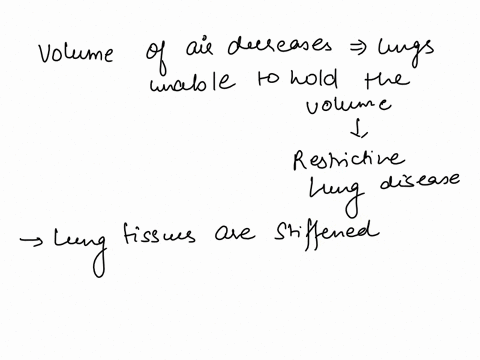 Volume of air decreases ⇒ lungs
unable to hold the
volume
↓
Restrictive
lung disease
→ Lung tissues are stiffened